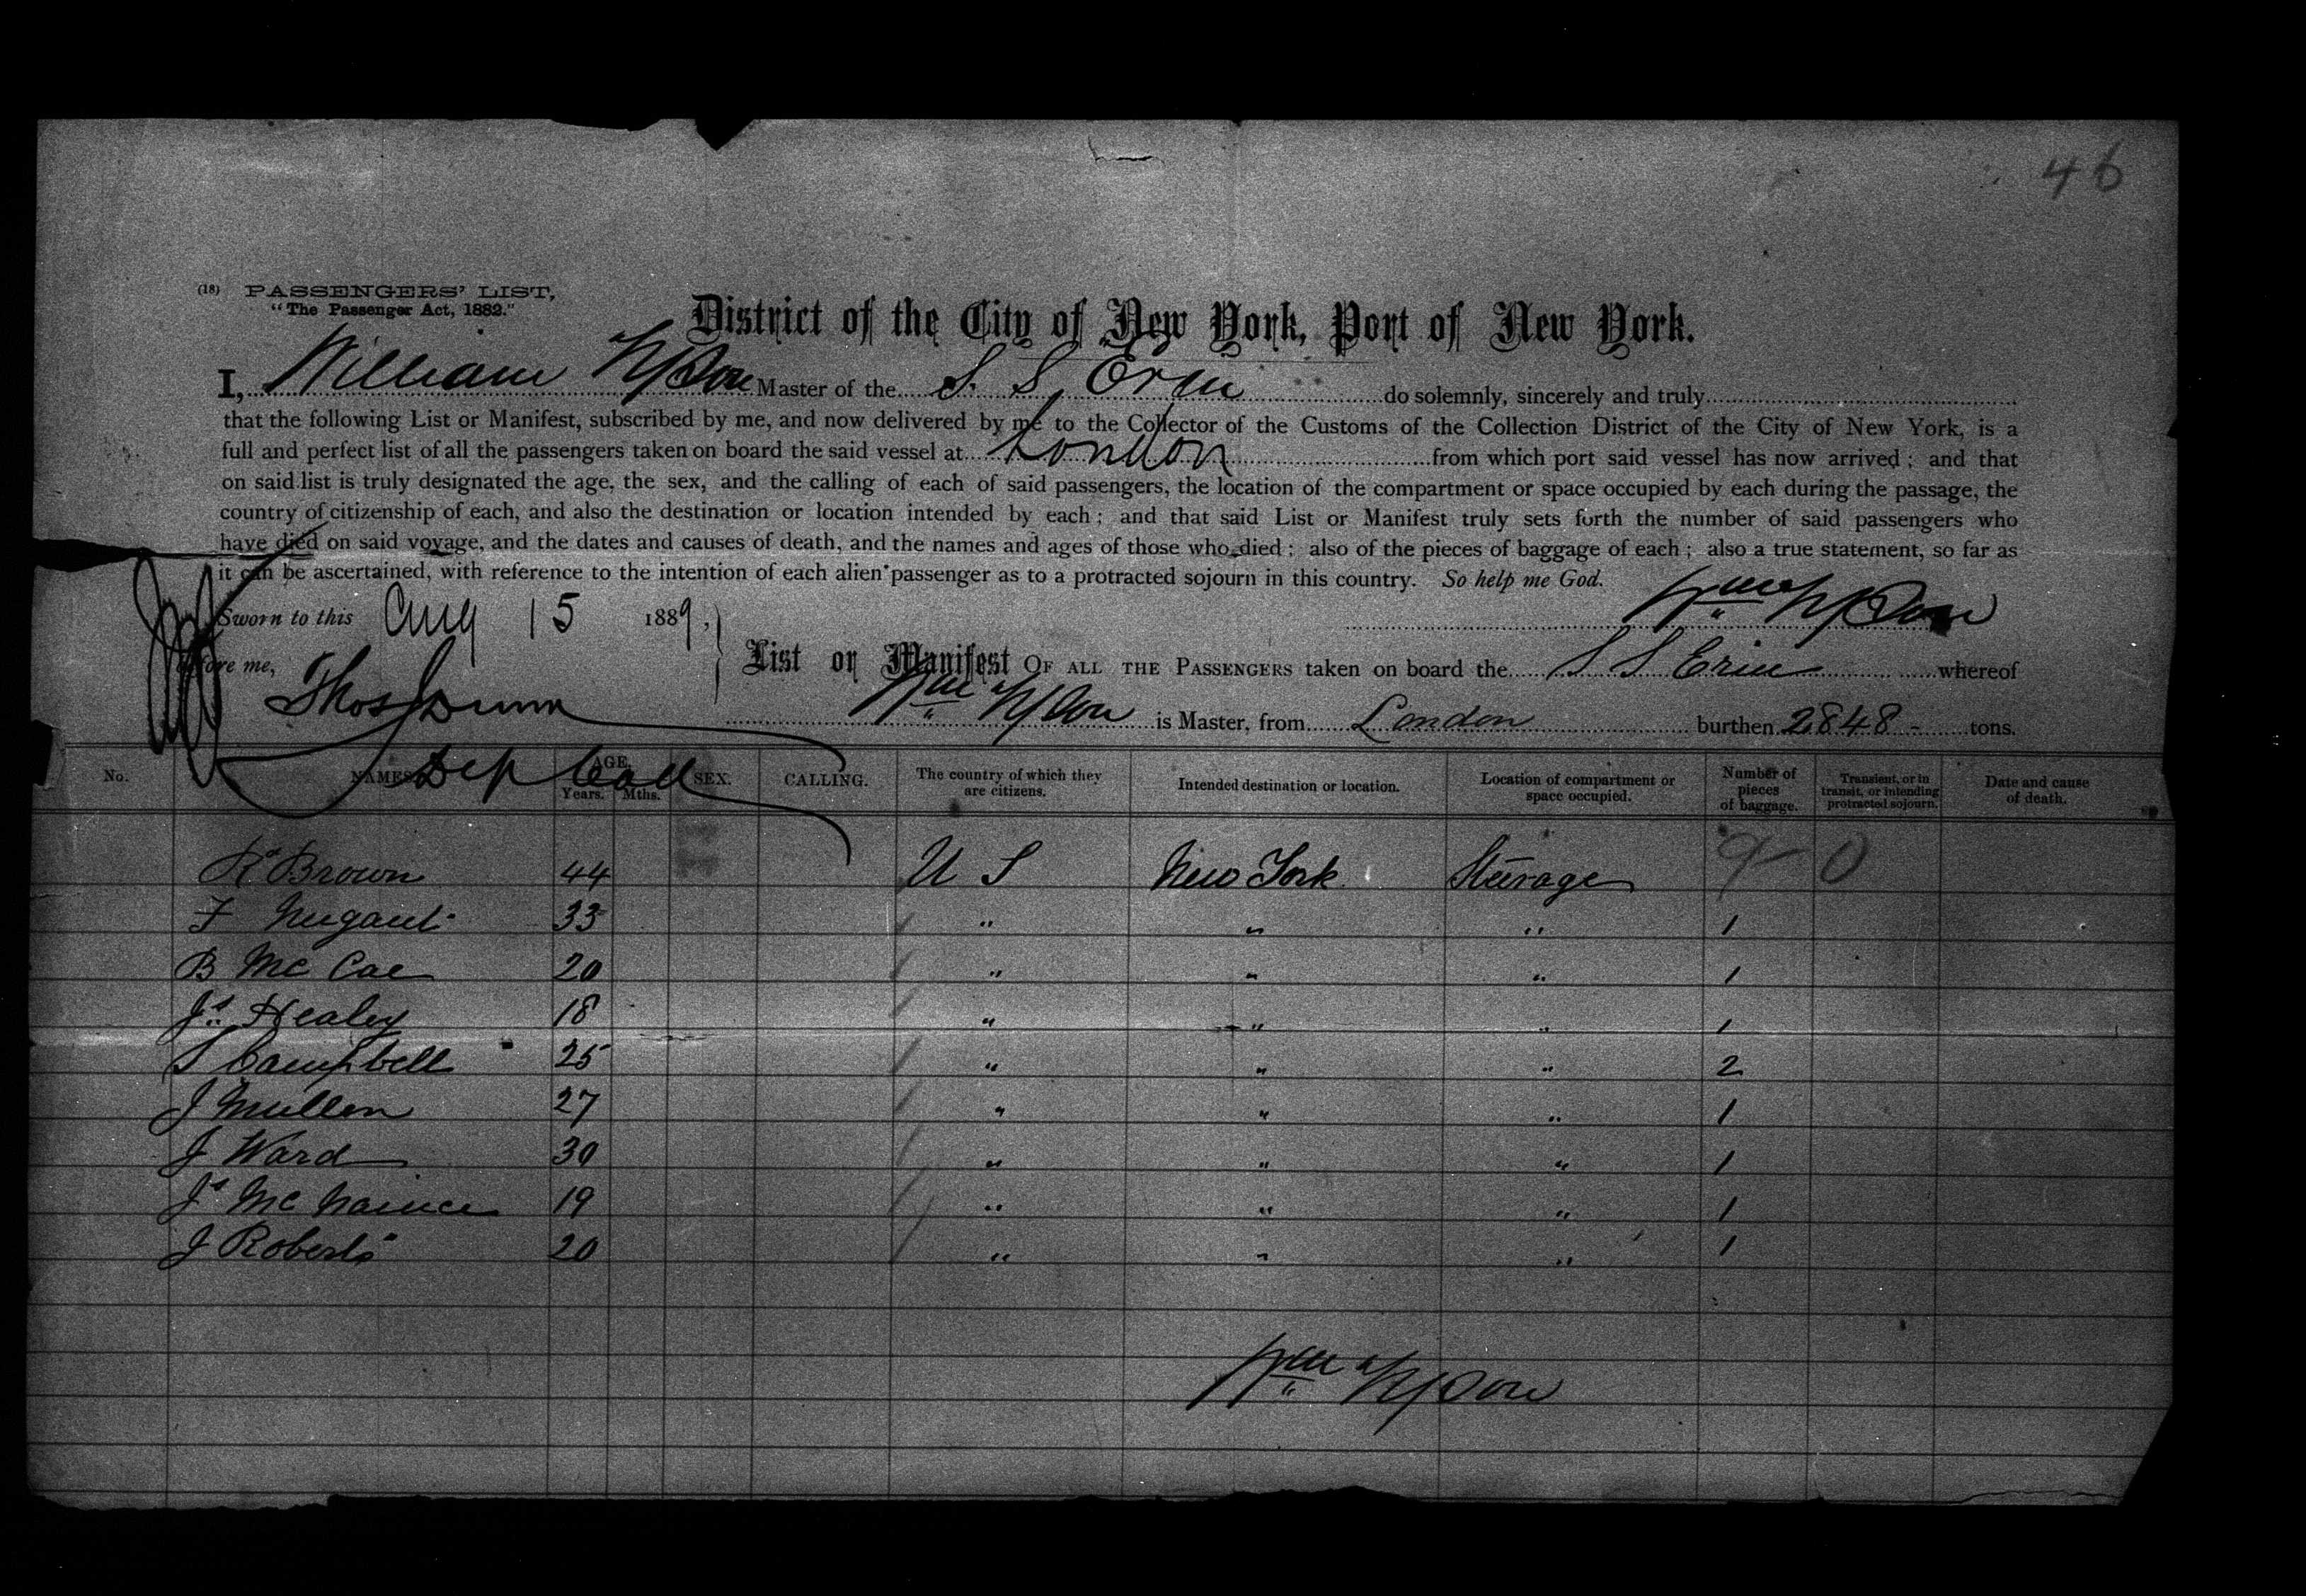 46
(18) PASSENGERS' LIST,
"The Passenger Act, 1882."
District of the City of New York, Port of New York.
I, William Master of the S. S. Erin do solemnly, sincerely and truly
that the following List or Manifest, subscribed by me, and now delivered by me to the Collector of the Customs of the Collection District of the City of New York, is a
full and perfect list of all the passengers taken on board the said vessel at London from which port said vessel has now arrived; and that
on said list is truly designated the age, the sex, and the calling of each of said passengers, the location of the compartment or space occupied by each during the passage, the
country of citizenship of each, and also the destination or location intended by each; and that said List or Manifest truly sets forth the number of said passengers who
have died on said voyage, and the dates and causes of death, and the names and ages of those who died; also of the pieces of baggage of each; also a true statement, so far as
it can be ascertained, with reference to the intention of each alien passenger as to a protracted sojourn in this country. So help me God.
Sworn to this Aug 15 1889,
Wm
before me,
List or Manifest OF ALL THE PASSENGERS taken on board the S S Erin whereof
Thos Dunn
Wm is Master, from London burthen 2848 - tons.
Dep Coll
No. NAMES AGE. Years. Mths. SEX. CALLING. The country of which they are citizens. Intended destination or location. Location of compartment or space occupied. Number of pieces of baggage. Transient, or in transit, or intending protracted sojourn. Date and cause of death.
Rd Brown 44 U S New York Steerage 9- 0
F Nugent 33 " " " 1
B Mc Cae 20 " " " 1
Js Healey 18 " " " 1
S Campbell 25 " " " 2
J Mullen 27 " " " 1
J Ward 30 " " " 1
Js Mc 19 " " " 1
J Roberts 20 " " " 1
Wm